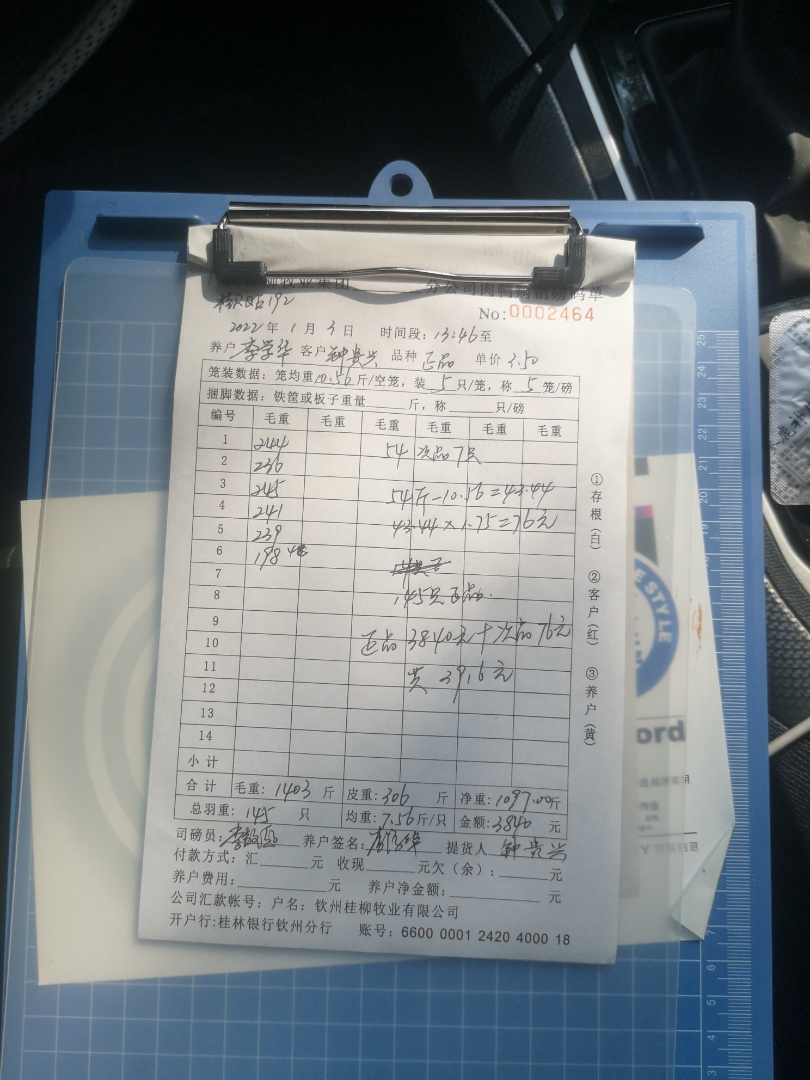 分公司肉鸭销售磅码单
No:0002464
2022年1月3日 时间段:13:46至
养户 李学华 客户 钟贵兴 品种 正品 单价 3.50
笼装数据:笼均重10.56斤/空笼,装5只/笼,称5笼/磅
捆脚数据:铁筐或板子重量____斤,称____只/磅
编号 毛重 毛重 毛重 毛重 毛重 毛重
1 244 54 次品7只
2 236
3 245 54斤-10.56=43.44
4 241 43.44×1.75=76元
5 239
6 198
7
8 145只正品.
9 正品3840元+次品76元
10
11 共3916元
12
13
14
小计
合计 毛重:1403斤 皮重:306斤 净重:1097.00斤
总羽重:145只 均重:7.56斤/只 金额:3840元
司磅员: 养户签名: 提货人 钟贵兴
付款方式:汇____元 收现____元欠(余):____元
养户费用:____元 养户净金额:____元
公司汇款帐号:户名:钦州桂柳牧业有限公司
开户行:桂林银行钦州分行 账号:6600 0001 2420 4000 18
①存根(白) ②客户(红) ③养户(黄)
E STYLE
ord